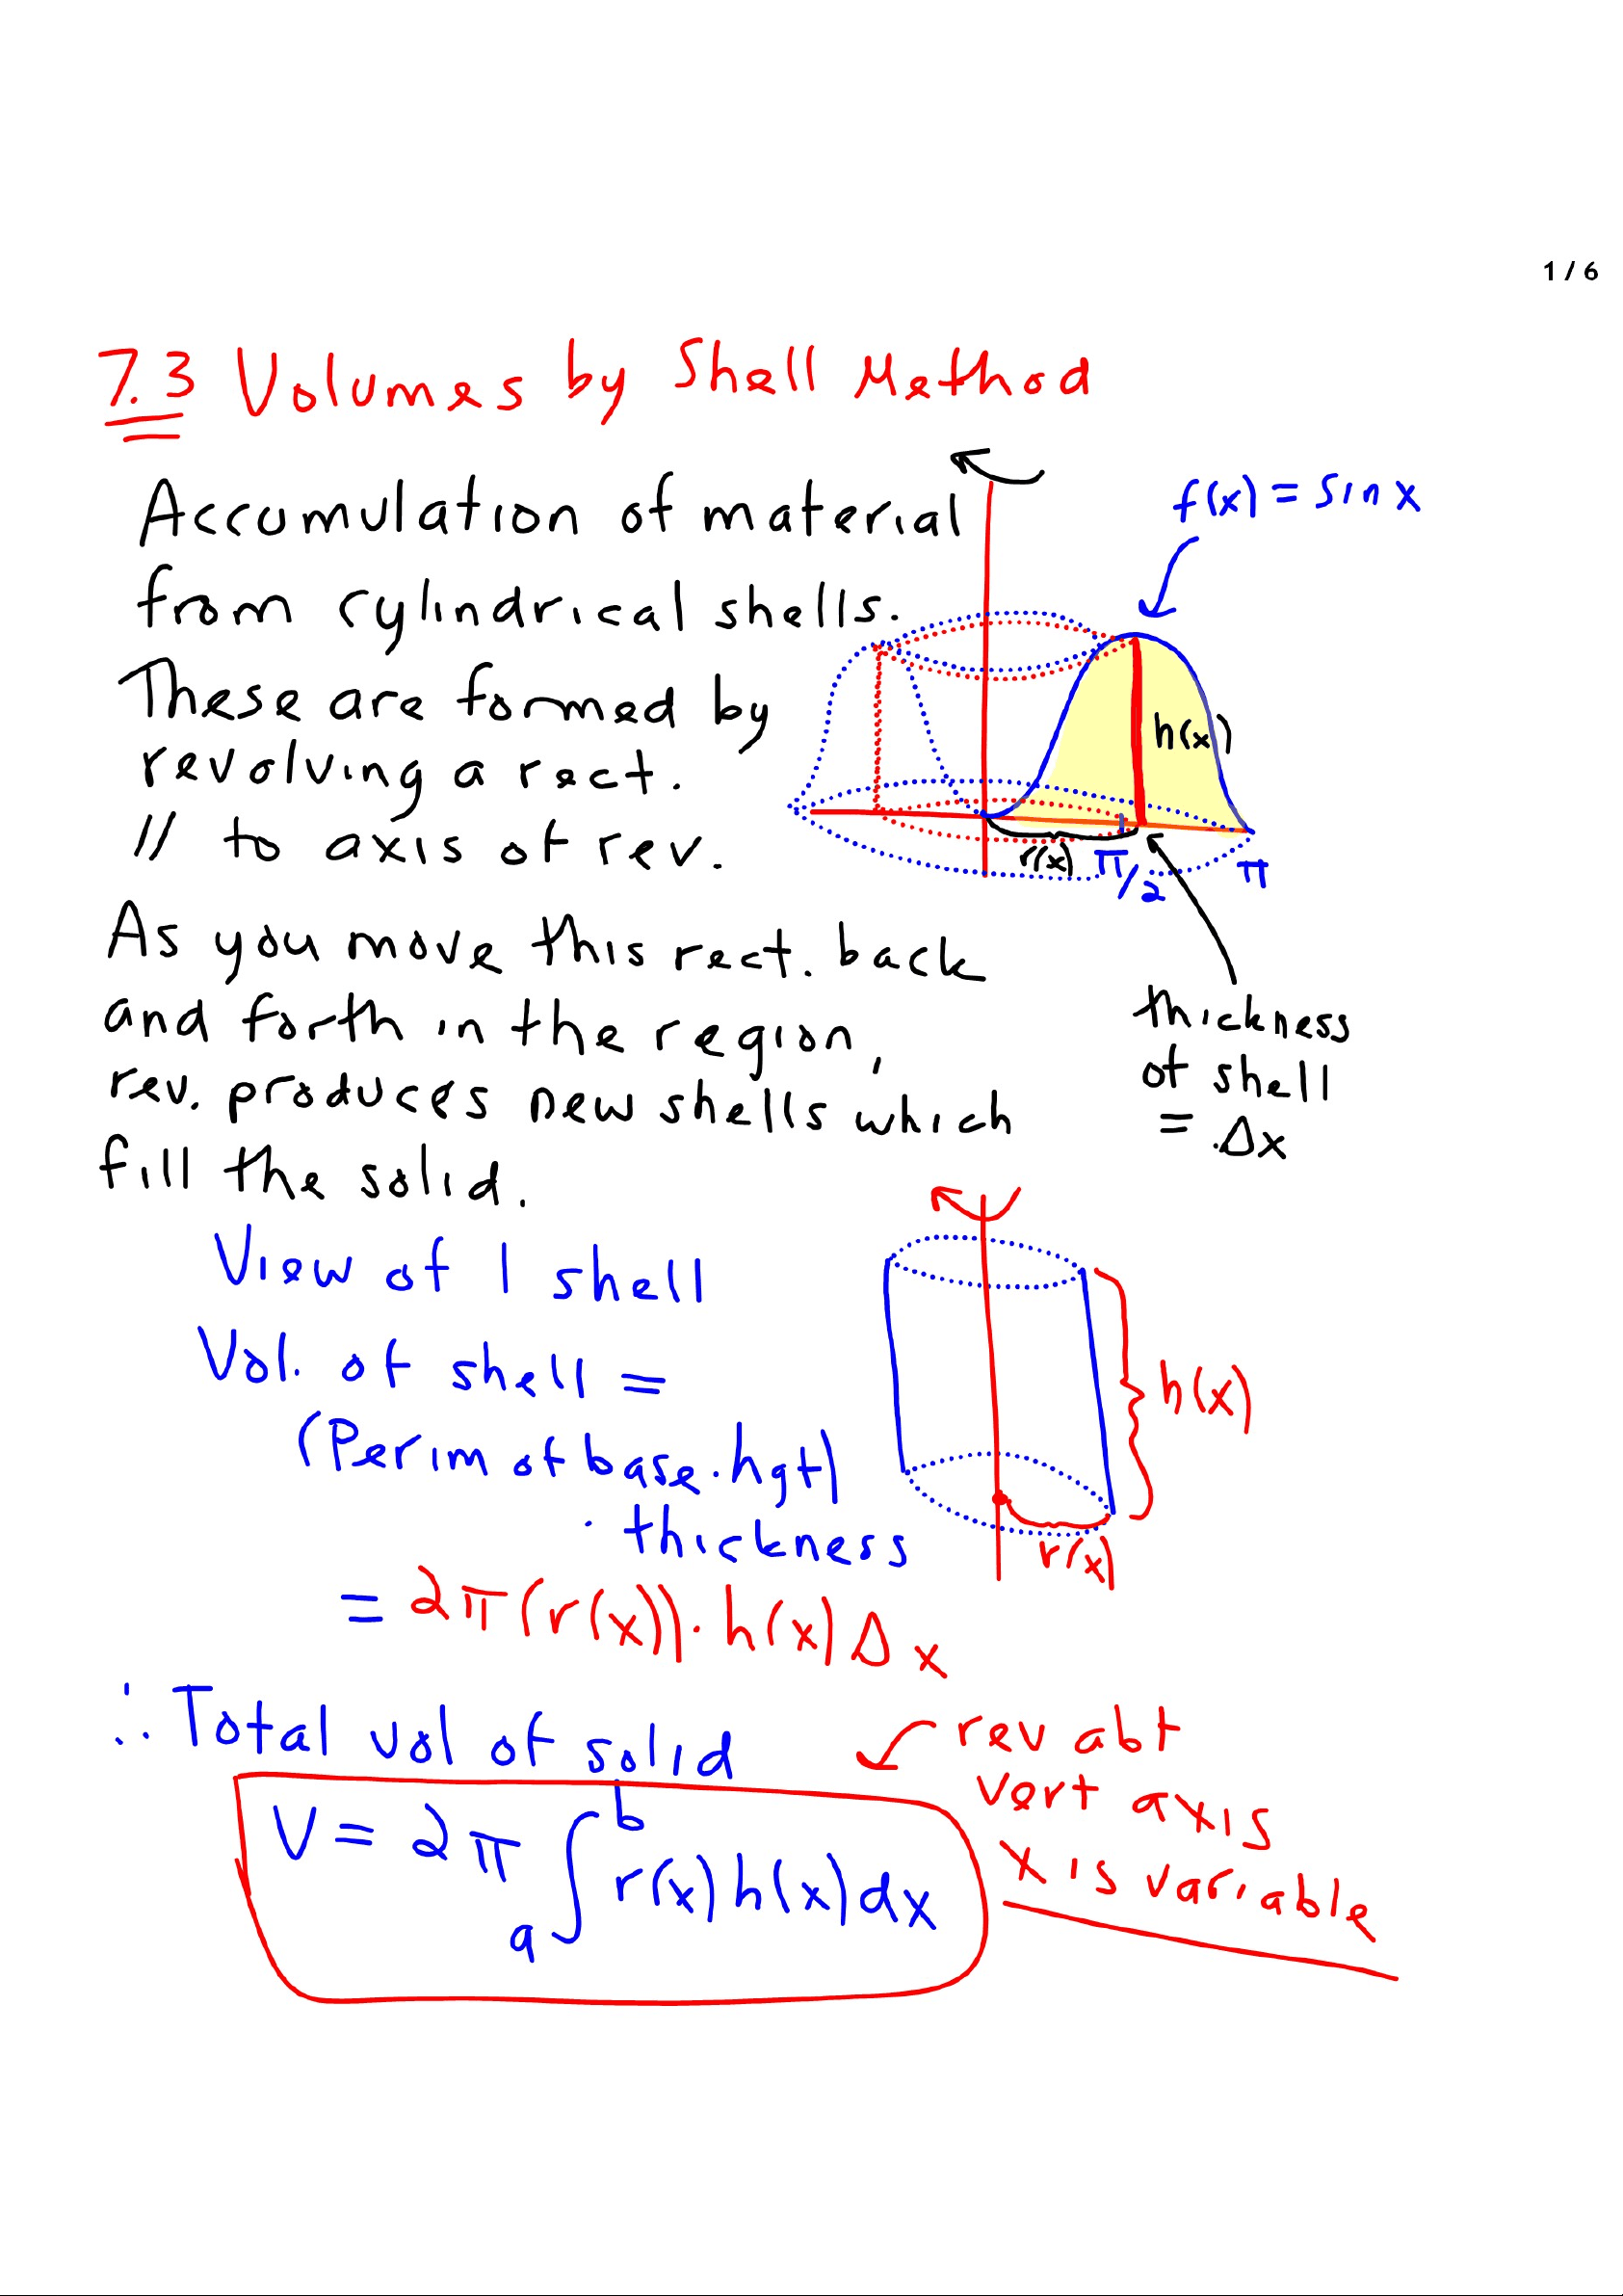 1 / 6
7.3 Volumes by Shell Method
Accumulation of material
from cylindrical shells.
These are formed by
revolving a rect.
// to axis of rev.
f(x) = sin x
h(x)
r(x)
π/2
π
As you move this rect. back
and forth in the region,
rev. produces new shells which
fill the solid.
thickness
of shell
= Δx
View of 1 shell
Vol. of shell =
(Perim of base · hgt)
· thickness
= 2π(r(x)) · h(x) Δx
h(x)
r(x)
∴ Total vol of solid
V = 2π ∫_a^b r(x) h(x) dx
rev abt
vert axis
x is variable